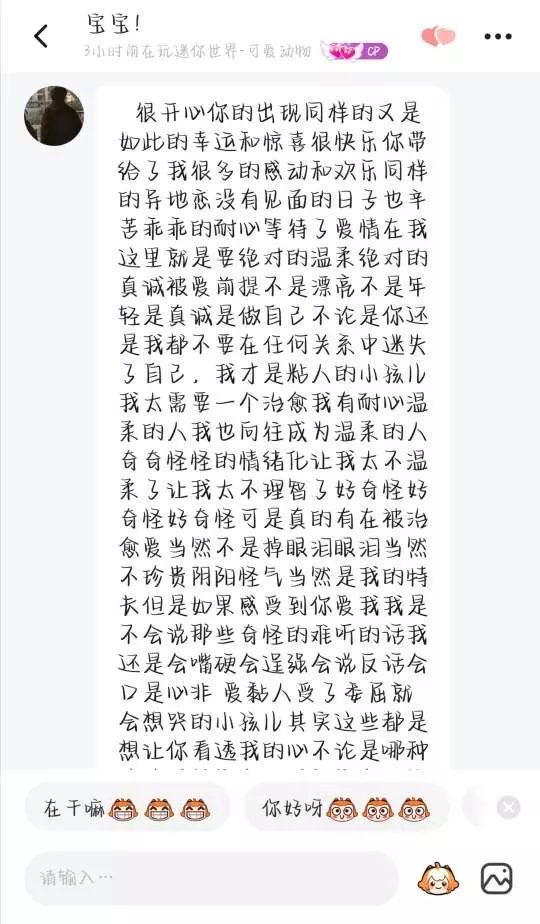 宝宝!
3小时前在玩迷你世界-可爱动物
CP
很开心你的出现同样的又是
如此的幸运和惊喜很快乐你带
给了我很多的感动和欢乐同样
的异地恋没有见面的日子也辛
苦乖乖的耐心等待了爱情在我
这里就是要绝对的温柔绝对的
真诚被爱前提不是漂亮不是年
轻是真诚是做自己不论是你还
是我都不要在任何关系中迷失
了自己，我才是粘人的小孩儿
我太需要一个治愈我有耐心温
柔的人我也向往成为温柔的人
奇奇怪怪的情绪化让我太不温
柔了让我太不理智了好奇怪好
奇怪好奇怪可是真的有在被治
愈爱当然不是掉眼泪眼泪当然
不珍贵阴阳怪气当然是我的特
长但是如果感受到你爱我我是
不会说那些奇怪的难听的话我
还是会嘴硬会逞强会说反话会
口是心非 爱黏人受了委屈就
会想哭的小孩儿其实这些都是
想让你看透我的心不论是哪种
在干嘛
你好呀
请输入…